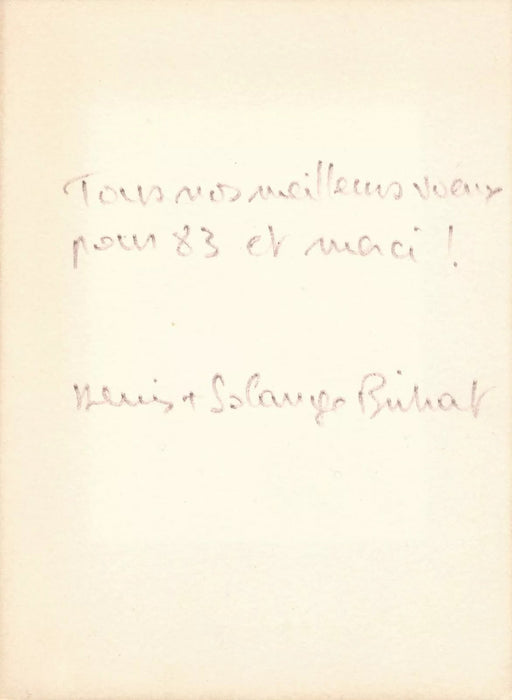 Tous nos meilleurs voeux
pour 83 et merci !
Denis + Solange Brihat